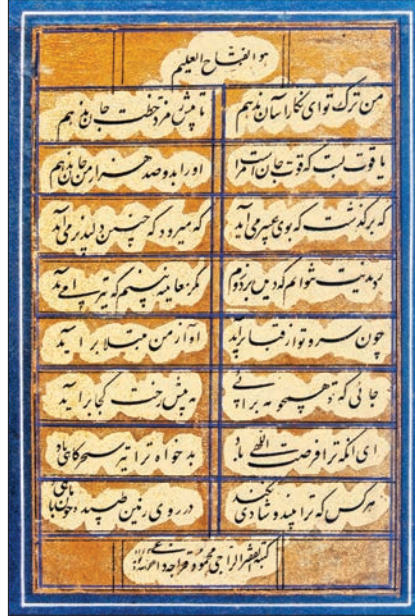 هو الفتاح العلیم
من ترک تو ای نگار آسان ندهم تا پیش زمرد خطت جان ندهم
یاقوت لبت که قوت جان است مرا او را بدو صد هزار مرجان ندهم
که برگذشت که بوی عبیر می آید که میرود که چنین دلپذیر می آید
ز دیدنت نتوانم که دیده بردوزم که تیر می آید
چون سرو تو از قبا برآید آواز من مبتلا برآید
جائی که تو همچو مه برآئی مه پیش رخت کجا برآید
ای آنکه ترا فرصت باد بدخواه ترا تیر سحرگاهی باد
هر کس که ترا بیند و شادی نکند در روی زمین طپیده چون ماهی باد
کتبه الفقیر الراجی محمود